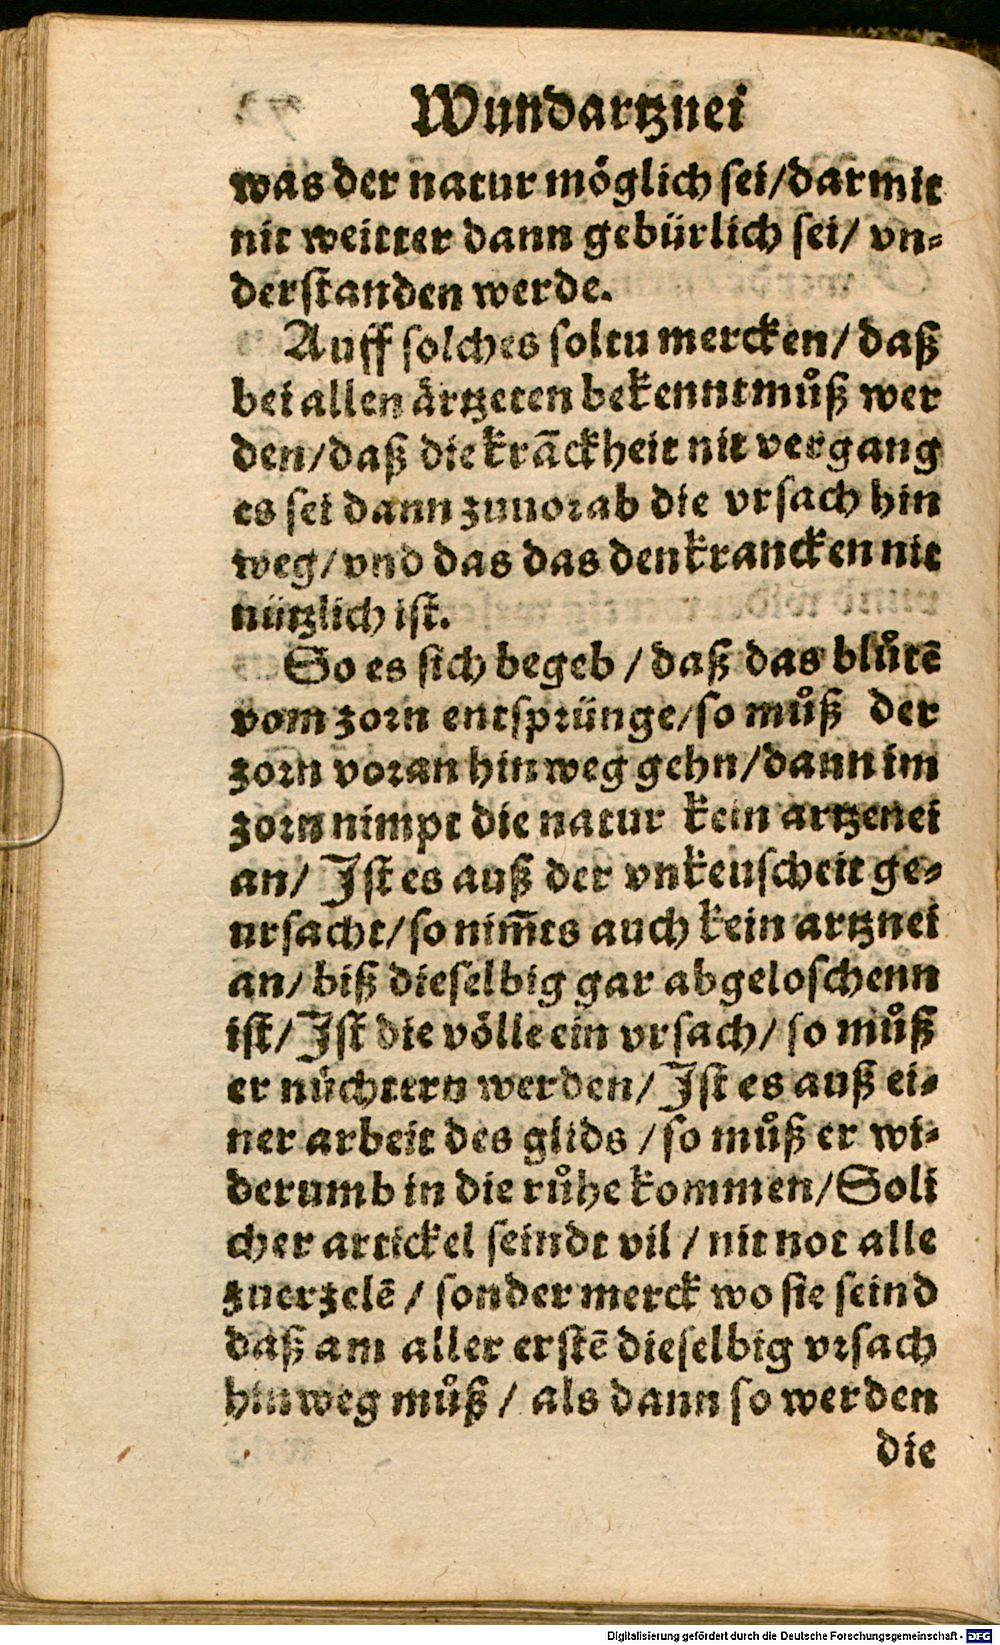 Wundartznei
was der natur möglich sei/darmit
nit weitter dann gebürlich sei/ vn⸗
derstanden werde.
Auff solches soltu mercken/ daß
bei allen ärtzeten bekennt můß wer
den/daß die krāckheit nit vergang
es sei dann zuuorab die vrsach hin
weg/vnd das das den krancken nit
nützlich ist.
So es sich begeb / daß das blůtē
vom zorn entsprünge/so můß der
zorn voran hinweg gehn/dann im
zorn nimpt die natur kein artzenei
an/ Ist es auß der vnkeuscheit ge⸗
ursacht/so nim̄ts auch kein artznei
an/ biß dieselbig gar abgeloschenn
ist/Ist die völle ein vrsach/ so můß
er nüchtern werden/ Ist es auß ei⸗
ner arbeit des glids /so můß er wi⸗
derumb in die růhe kommen/Soli
cher artickel seindt vil / nit not alle
zuerzelē / sonder merck wo sie seind
daß am aller erstē dieselbig vrsach
hinweg můß / als dann so werden
die
Digitalisierung gefördert durch die Deutsche Forschungsgemeinschaft - DFG